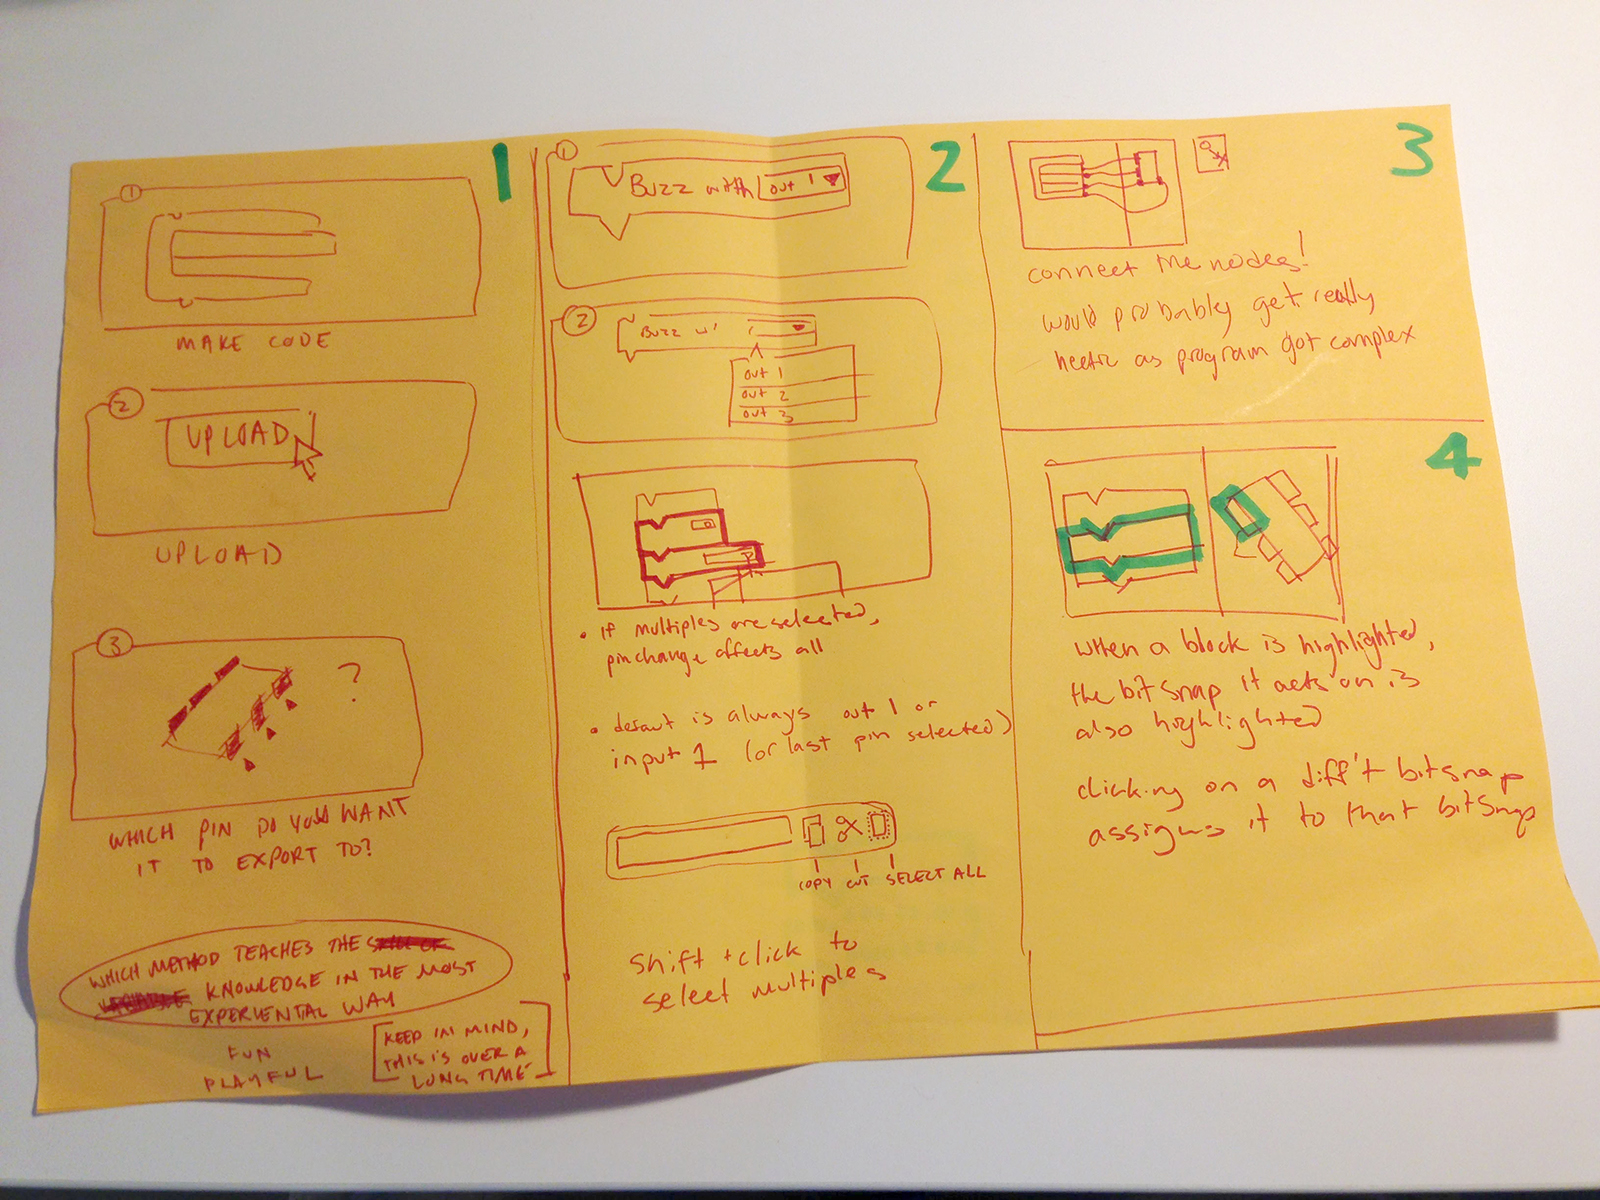 1
1
MAKE CODE
2
UPLOAD
UPLOAD
3
?
WHICH PIN DO YOU WANT
IT TO EXPORT TO?
WHICH METHOD TEACHES THE
KNOWLEDGE IN THE MOST
EXPERIENTAL WAY
FUN
PLAYFUL
KEEP IN MIND,
THIS IS OVER A
LONG TIME
2
1
Buzz with out 1
2
Buzz w/
out 1
out 2
out 3
• if multiples are selected,
pin change affects all
• defaut is always out 1 or
input 1 (or last pin selected)
COPY CUT SELECT ALL
Shift + click to
select multiples
3
connect the nodes!
would probably get really
hectic as program got complex
4
when a block is highlighted,
the bitsnap it acts on is
also highlighted
clicking on a diff't bitsnap
assigns it to that bitsnap